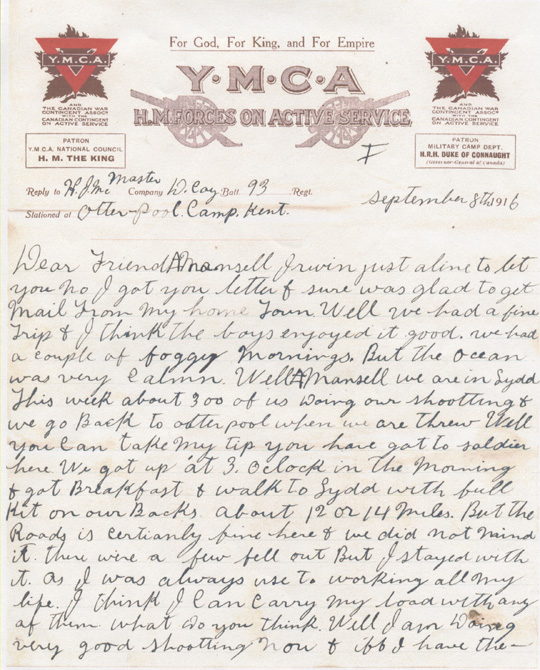 For God, For King, and For Empire
Y.M.C.A.
AND
THE CANADIAN WAR
CONTINGENT ASSOCN
WITH THE
CANADIAN CONTINGENT
ON ACTIVE SERVICE
PATRON
Y.M.C.A. NATIONAL COUNCIL
H. M. THE KING
Y·M·C·A
H.M. FORCES ON ACTIVE SERVICE
Y.M.C.A.
AND
THE CANADIAN WAR
CONTINGENT ASSOCN
WITH THE
CANADIAN CONTINGENT
ON ACTIVE SERVICE
PATRON
MILITARY CAMP DEPT.
H.R.H. DUKE OF CONNAUGHT
(Governor-General of Canada)
I
Reply to H. J. Mc Master Company D. Coy Batt. 93 Regt.
September 8th, 1916
Stationed at Otter-Pool. Camp. Kent.
Dear Friend Mansell Irwin just a line to let
you no I got you letter & sure was glad to get
Mail From My home Town. Well we had a fine
Trip & I think the boys enjoyed it good. we had
a couple of foggy Mornings. But the Ocean
was very Calmn. Well Mansell we are in Lydd
This week about 300 of us Doing our shootting &
we go Back to otterpool when we are threw Well
you Can take My tip you have got to soldier
here We got up at 3. Oclock in the Morning
& got Breakfast & walk to Lydd with full
Kit on our Backs about 12 or 14 Miles. But the
Roads is certianly fine here & we did not Maind
it. there were a few fell out But I stayed with
it. as I was always use to working all My
life. I think I Can Carry My load with any
of them what do you think. Well I am Doing
very good shootting Now & if I have the-